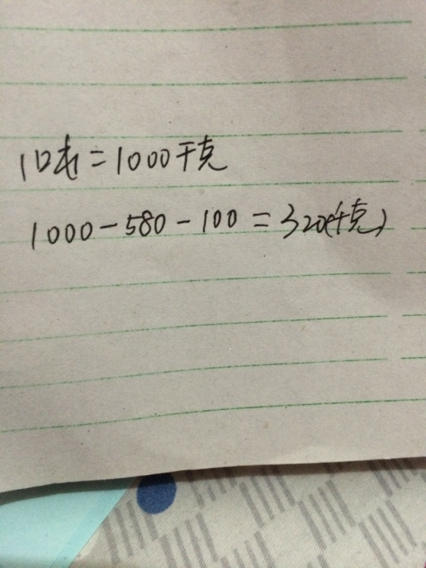 1吨=1000千克
1000-580-100=320(千克)